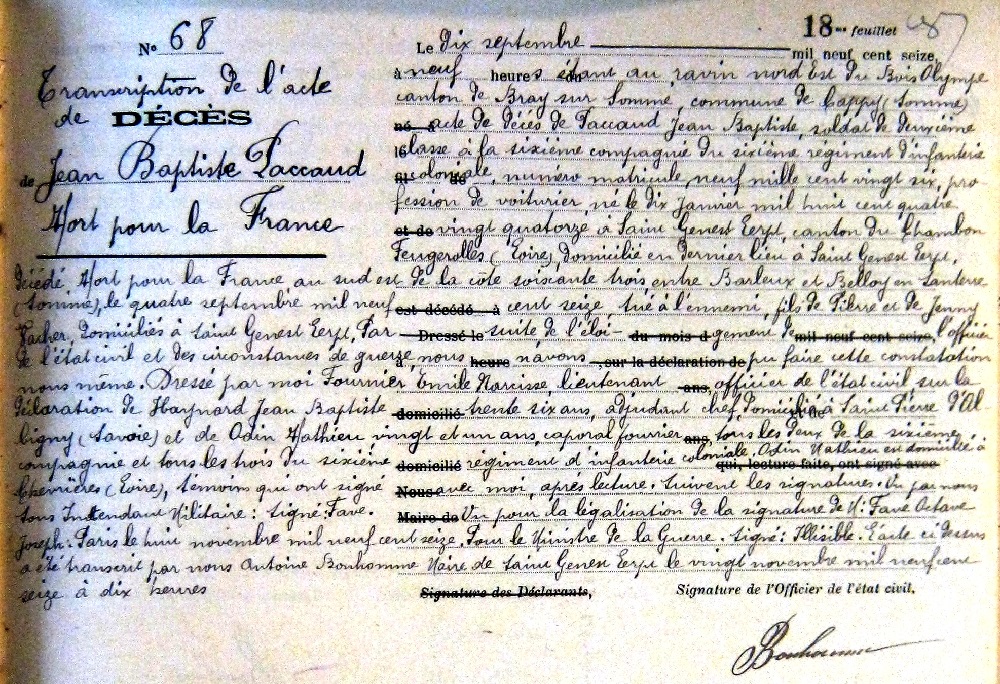 18me feuillet
N° 68
Transcription de l'acte
de DÉCÈS
de Jean Baptiste Paccaud
Mort pour la France
Le dix septembre mil neuf cent seize,
à neuf heures étant au ravin nord Est du Bois Olympe
canton de Bray sur Somme, commune de Cappy (Somme)
né à acte de décès de Paccaud Jean Baptiste, soldat de deuxième
classe à la sixième compagnie du sixième régiment d'infanterie
coloniale, numéro matricule, neuf mille cent vingt six, pro
fession de voiturier, né le dix Janvier mil huit cent quatre
et de vingt quatorze à Saint Genest Lerpt, canton du Chambon
Feugerolles (Loire), domicilié en dernier lieu à Saint Genest Lerpt,
décédé. Mort pour la France au sud est de la côte soixante trois entre Barleux et Belloy en Santerre
(Somme), le quatre septembre mil neuf est décédé à cent seize, tué à l'ennemi, fils de Pierre et de Jenny
Vacher, domiciliés à Saint Genest Lerpt, Par Dressé le suite de l'éloi- du mois d gement de mil neuf cent seize, l'officier
de l'état civil et des circonstances de guerre, nous heure n'avons , sur la déclaration de pu faire cette constatation
nous même. Dressé par moi Fournier Emile Narcisse lieutenant ans, officier de l'état civil sur la
déclaration de Haynard Jean Baptiste domicilié trente six ans, adjudant chef, domicilié à Saint Pierre d'Al
bigny (Savoie) et de Odin Mathieu vingt et un ans caporal fourrier ans, tous les deux de la sixième
compagnie et tous les trois du sixième domicilié régiment d'infanterie coloniale. Odin Mathieu en domicilié à
qui, lecture faite, ont signé avec
Chenières (Loire), témoins qui ont signé Nous avec moi, après lecture. Suivent les signatures. Vu par nous
sous Intendant Militaire : signé : Fave. Maire de Vu pour la légalisation de la signature de M. Fave Octave
Joseph. Paris le huit novembre mil neuf cent seize. Pour le Ministre de la Guerre. Signé : Illisible. L'acte ci dessus
a été transcrit par nous Antoine Bonhomme Maire de Saint Genest Lerpt le vingt novembre mil neuf cent
seize à dix heures
Signature des Déclarants, Signature de l'Officier de l'état civil,
Bonhomme